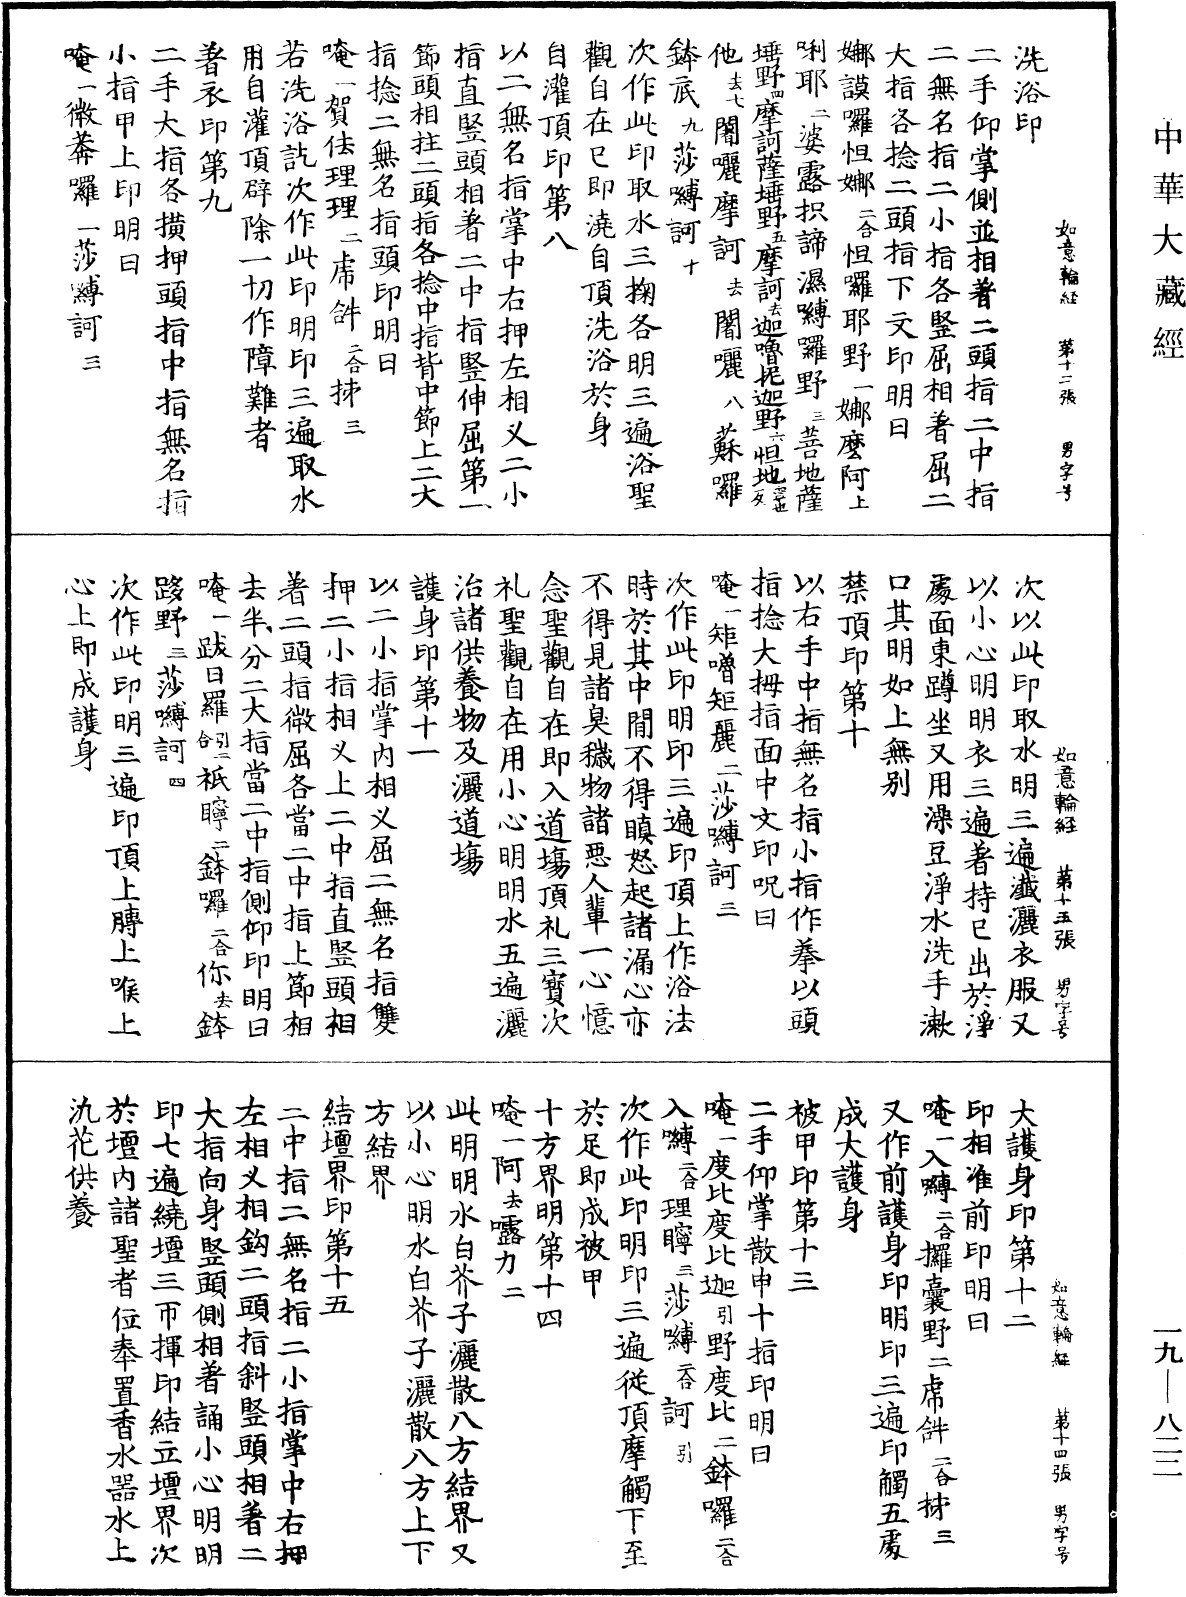 中華大藏經
如意輪経　第十二張　男字号
洗浴印
二手仰掌側並相著二頭指二中指
二無名指二小指各竪屈相著屈二
大指各捻二頭指下文印明曰
娜謨囉怛娜二合怛囉耶野一娜麼阿上
唎耶二婆露枳諦濕嚩囉野三菩地薩
埵野四摩訶薩埵野五摩訶去迦嚕抳迦野六怛地
他去七闍囇摩訶去闍囇八蘇囉
鉢底九莎嚩訶十
次作此印取水三掬各明三遍浴聖
觀自在已即澆自頂洗浴於身
自灌頂印第八
以二無名指掌中右押左相叉二小
指直竪頭相著二中指竪伸屈第一
節頭相拄二頭指各捻中指背中節上二大
指捻二無名指頭印明曰
唵一賀佉理理二虎𤙖二合抺三
若洗浴訖次作此印明印三遍取水
用自灌頂辟除一切作障難者
著衣印第九
二手大指各横押頭指中指無名指
小指甲上印明曰
唵一微莾囉一莎嚩訶三
如意輪経　第十五張　男字号
次以此印取水明三遍濺灑衣服又
以小心明明衣三遍著持已出於淨
處面東蹲坐又用澡豆淨水洗手漱
口其明如上無别
禁頂印第十
以右手中指無名指小指作拳以頭
指捻大拇指面中文印呪曰
唵一矩嚕矩麗二莎嚩訶三
次作此印明印三遍印頂上作浴法
時於其中間不得瞋怒起諸漏心亦
不得見諸臭穢物諸惡人輩一心憶
念聖觀自在即入道塲頂礼三寶次
礼聖觀自在用小心明明水五遍灑
治諸供養物及灑道塲
護身印第十一
以二小指掌内相叉屈二無名指雙
押二小指相叉上二中指直竪頭相
著二頭指微屈各當二中指上節相
去半分二大指當二中指側仰印明曰
唵一跋日羅引二合衹矃二鉢囉二合你去鉢
跢野三莎嚩訶四
次作此印明三遍印頂上膊上喉上
心上即成護身
如意輪経　第十四張　男字号
大護身印第十二
印相准前印明曰
唵一入嚩二合攞囊野二虎𤙖二合抺三
又作前護身印明印三遍印觸五處
成大護身
被甲印第十三
二手仰掌散申十指印明曰
唵一度比度比迦引野度比二鉢囉二合
入嚩二合理矃三莎嚩二合訶引
次作此印明印三遍從頂摩觸下至
於足即成被甲
十方界明第十四
唵一阿去嚧力二
此明明水白芥子灑散八方結界又
以小心明水白芥子灑散八方上下
方結界
結壇界印第十五
二中指二無名指二小指掌中右押
左相叉相鈎二頭指斜竪頭相著二
大指向身竪頭側相著誦小心明明
印七遍繞壇三帀揮印結立壇界次
於壇内諸聖者位奉置香水器水上
氿花供養
一九—八二二